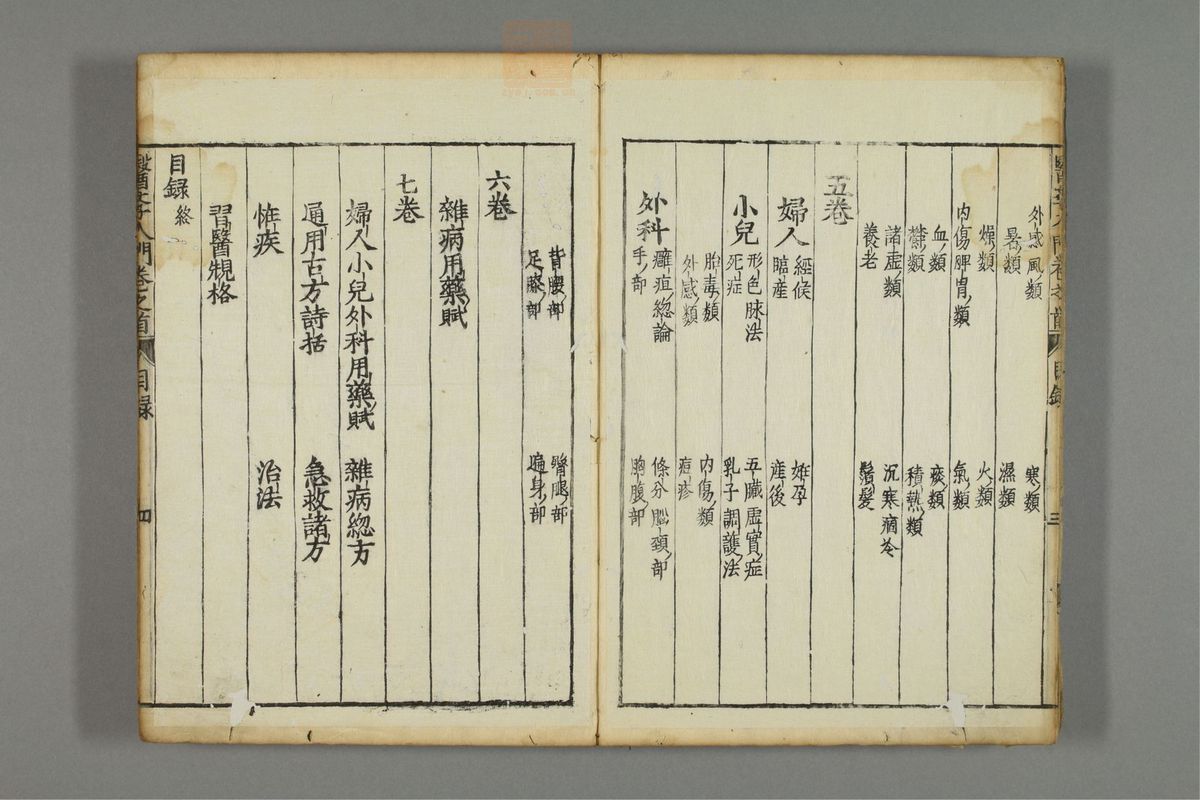 外感風類
寒類
暑類
濕類
燥類
火類
內傷脾胃類
氣類
血類
痰類
欝類
積熱類
諸虛類
沉寒痼冷
養老
鬚髮
五卷
婦人
經候
姙孕
臨産
産後
小兒
形色脉法
五臟虛實症
死症
乳子調護法
胎毒類
內傷類
外感類
痘疹
外科
癰疽緫論
條分腦頸部
手部
胸腹部
醫學入門卷之首
目録
三
背腰部
臀腿部
足膝部
遍身部
六卷
雜病用藥賦
七卷
婦人小兒外科用藥賦
雜病緫方
通用古方詩括
急救諸方
恠疾
治法
習醫規格
目録終
醫學入門卷之首
目録
四